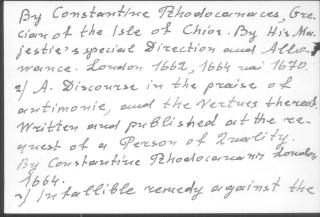 By Constantine Rhodocanaces, Gre-
cian of the Isle of Chios. By His Ma-
jestie's special Direction and Allo-
wance. London 1662, 1664 και 1670.
2) A. Discourse in the praise of
antimonie, and the Vertues thereof.
Written and published at the re-
quest of a Person of Quality.
By Constantine Rhodocanaces London
1664.
3) Infallible remedy against the